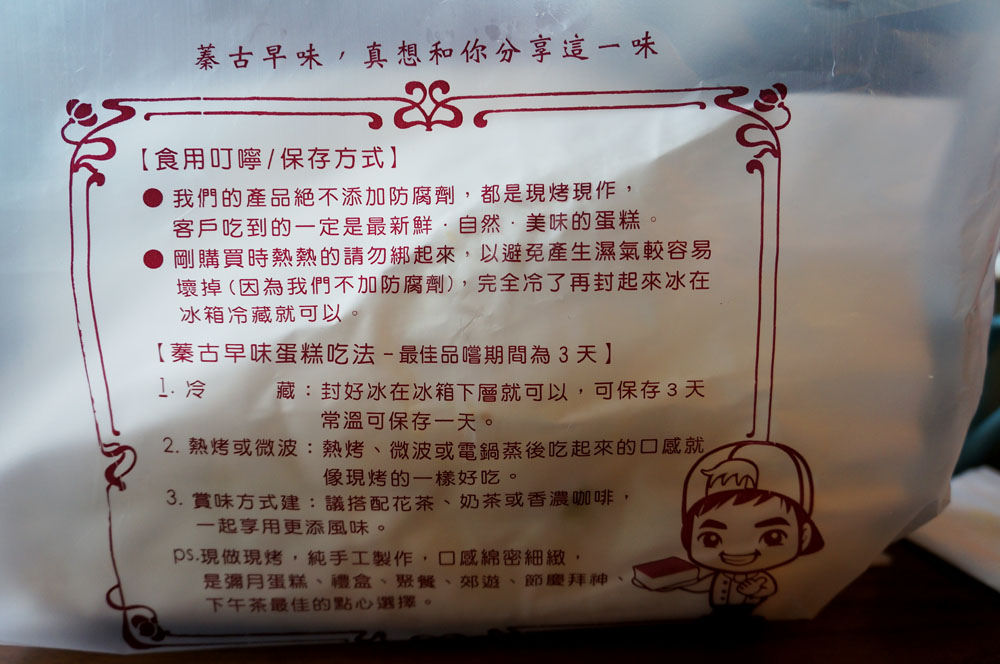 蓁古早味，真想和你分享這一味
【食用叮嚀/保存方式】
●我們的產品絕不添加防腐劑，都是現烤現作，
客戶吃到的一定是最新鮮．自然．美味的蛋糕。
●剛購買時熱熱的請勿綁起來，以避免產生濕氣較容易
壞掉(因為我們不加防腐劑)，完全冷了再封起來冰在
冰箱冷藏就可以。
【蓁古早味蛋糕吃法-最佳品嚐期間為3天】
1.冷　　藏：封好冰在冰箱下層就可以，可保存3天
常溫可保存一天。
2.熱烤或微波：熱烤、微波或電鍋蒸後吃起來的口感就
像現烤的一樣好吃。
3.賞味方式建：議搭配花茶、奶茶或香濃咖啡，
一起享用更添風味。
ps.現做現烤，純手工製作，口感綿密細緻，
是彌月蛋糕、禮盒、聚餐、郊遊、節慶拜神、
下午茶最佳的點心選擇。